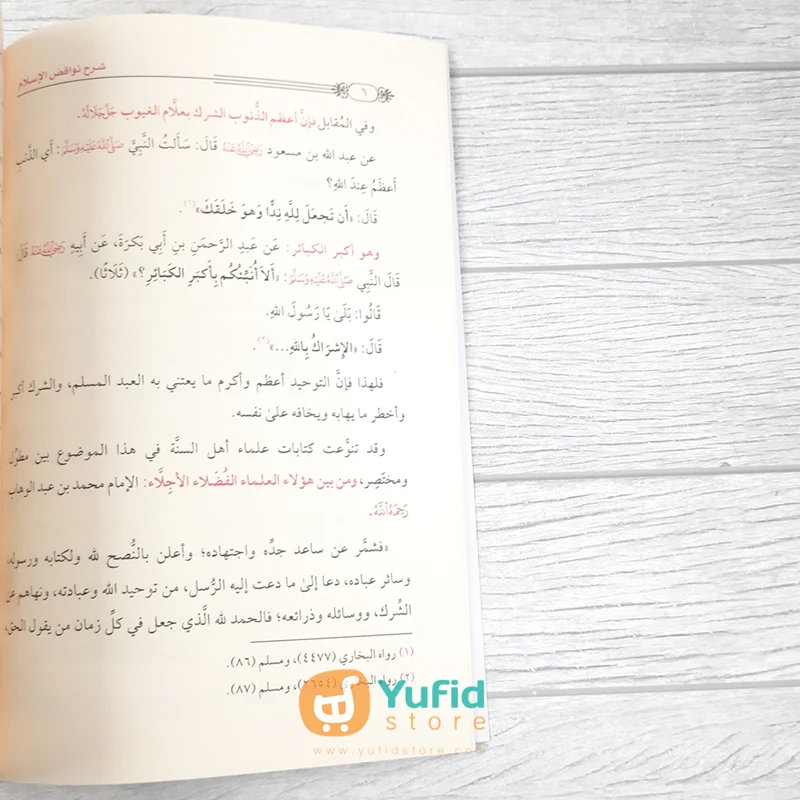 شرح نواقض الإسلام
٦
وفي المُقابل فإنَّ أعظم الذُّنوب الشرك بعلَّام الغيوب جَلَّ جَلَالُهُ.
عن عبد الله بن مسعود رَضِيَ اللَّهُ عَنْهُ قَالَ: سَأَلتُ النَّبِيَّ صَلَّى اللَّهُ عَلَيْهِ وَسَلَّمَ: أَي الذَّنبِ
أَعظَمُ عِندَ اللهِ؟
قَالَ: «أَن تَجعَلَ لِلَّهِ نِدًّا وَهوَ خَلَقَكَ»(١).
وهو أكبر الكبائر: عَن عَبدِ الرَّحمَنِ بنِ أَبِي بَكرَةَ، عَن أَبِيهِ رَضِيَ اللَّهُ عَنْهُ قَالَ:
قَالَ النَّبِي صَلَّى اللَّهُ عَلَيْهِ وَسَلَّمَ: «أَلَا أُنَبِّئُكُم بِأَكبَرِ الكَبَائِرِ؟» (ثَلَاثًا).
قَالُوا: بَلَىٰ يَا رَسُولَ اللهِ.
قَالَ: «الإِشرَاكُ بِاللهِ...»(٢).
فلهذا فإنَّ التوحيد أعظم وأكرم ما يعتني به العبد المسلم، والشرك أكبر
وأخطر ما يهابه ويخافه علىٰ نفسه.
وقد تنوَّعت كتابات علماء أهل السنَّة في هذا الموضوع بين مطوَّل
ومختَصِر، ومن بين هؤلاء العلماء الفُضَلاء الأجِلَّاء: الإمام محمد بن عبد الوهاب
رَحِمَهُ اللَّهُ.
«فشمَّر عن ساعد جدِّه واجتهاده؛ وأعلن بالنُّصح لله ولكتابه ورسوله،
وسائر عباده، دعا إلىٰ ما دعت إليه الرُّسل، من توحيد الله وعبادته، ونهاهم عن
الشِّرك، ووسائله وذرائعه؛ فالحمد لله الَّذي جعل في كلِّ زمان من يقول الحق،
(١) رواه البخاري (٤٤٧٧)، ومسلم (٨٦).
(٢) رواه البخاري (٢٦٥٤)، ومسلم (٨٧).
Yufid
store
www.yufidstore.com